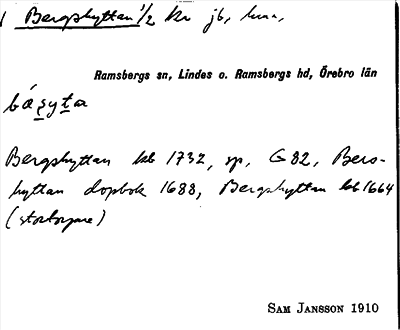 Bergshyttan 1/2 kr jb, hmn,
Ramsbergs sn, Lindes o. Ramsbergs hd, Örebro län
básyta
Bergshyttan kb 1732, sp. G82, Bers-
hyttan dopbok 1688, Bergshyttan kb 1664
(storbrytare)
SAM JANSSON 1910